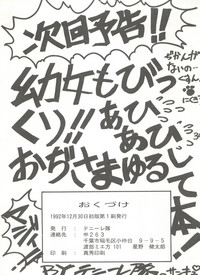 次回予告!!
じかんが
ないの…
くすん
幼女もびっ
くり!! あひあひ
おぢさまゆるして本!
おくづけ
1992年12月30日初版第1刷発行
発行：テニーレ隊
連絡先：〒263
千葉市稲毛区小仲台 9-9-5
渡部ミエ方 101 星野 健太郎
印刷：真秀印刷
BY テニーレ隊